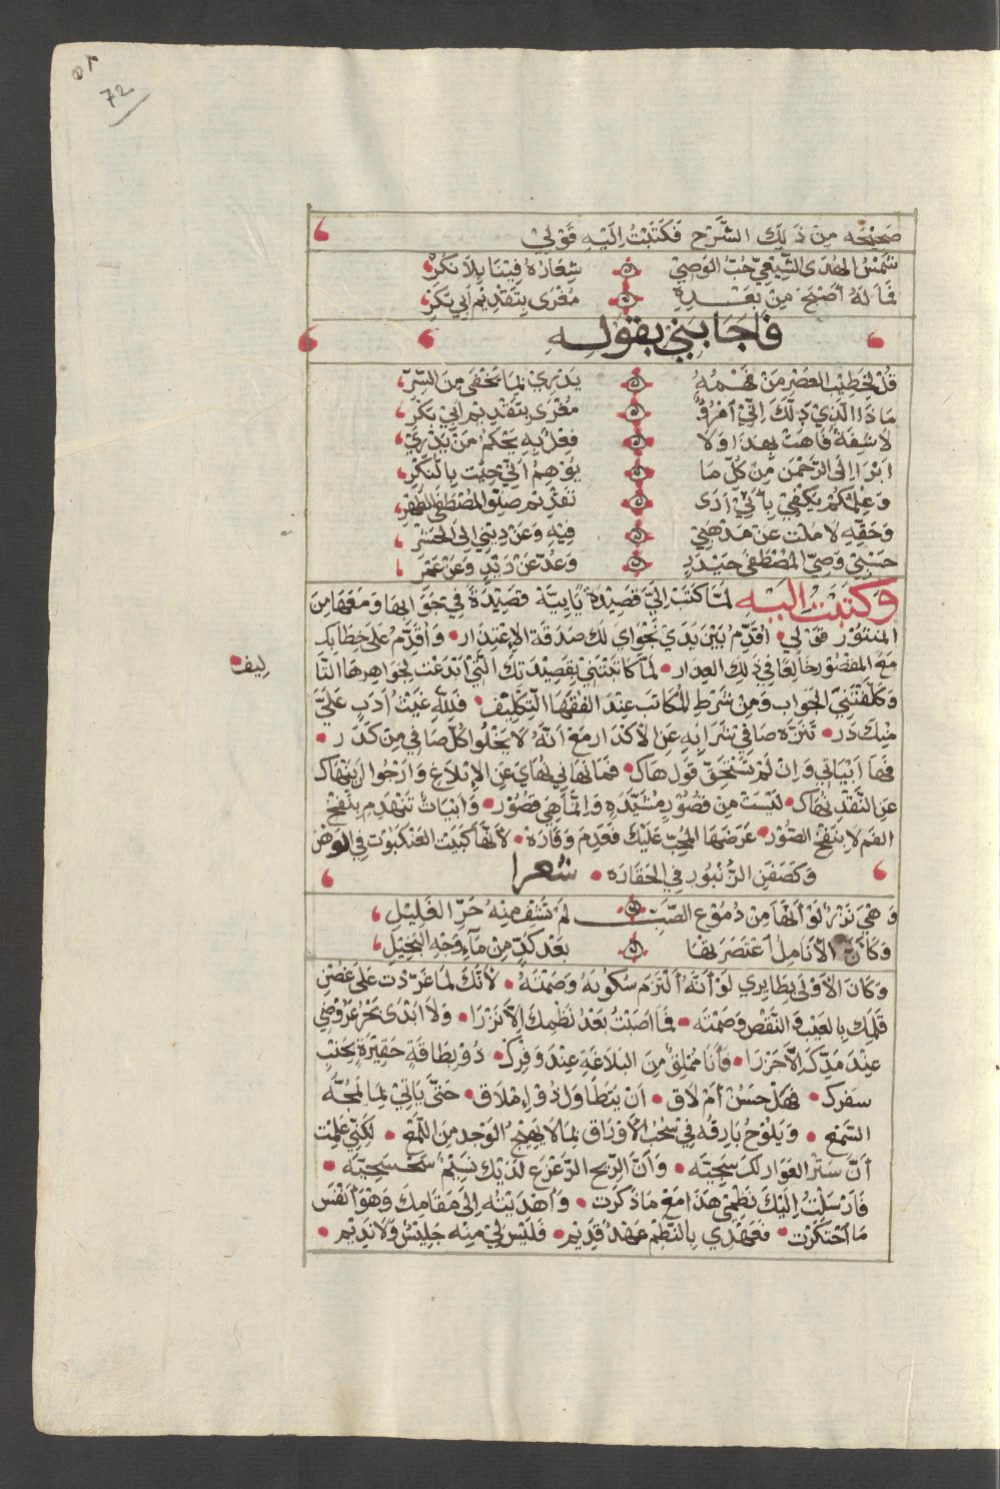 72
صحيحه من ذلك الشرح فكتبت اليه قولي
شمس الهدى الشيعي حب الوصي شعاره فينا بلا نكر
فما له أصبح من بعده مغرى بتقديم أبي بكر
فاجابني بقوله
قل لخطيب العصر من فهمه يدري بما يخفى من السر
ماذا الذي ذلك اني امرؤ مغرى بتقديم ابي بكر
لا شفة فاهت بهذا ولا فعل به يحكم من يدري
ابرا الى الرحمن من كل ما يوهم اني جئت بالنكر
وعلمكم يكفي بأني ارى تقديم صنو المصطفى الطهر
وحقه لا ملت عن مذهبي فيه وعن ديني الى الحشر
حسبي وصي المصطفى حيدر وعد عن زيد وعن عمر
وكتبت اليه لما كتب الي قصيدة يايية قصيدة في جوابها ومعها من
المنثور قولي اقدم بين يدي نجواي لك صدقة الاعتذار وأقدم على خطابك
مع القصور خالعا في ذلك العذار لما كاتبتني بقصيدتك التي ابدعت بجواهرها التا
ليف
وكلفتني الجواب ومن شرط المكاتب عند الفقها التكليف فلله غيث أدب علي
منك در تنزه صافي شرابه عن الاكدار مع أنه لا يخلوا كل صافي من كدر
فها أبياتي وان لم تستحق قول هاك فما نهاني نهاي عن الابلاغ وارجوا ان ينهاك
عن النقد نهاك ليست من قصور مشيدة وانما هي قصور وابيات تنهدم بنفخ
الفم لا بنفخ الصور عرضها المحب عليك فعدم وقاره لأنها كبيت العنكبوت في الوهن
وكصفن الزنبور في الحقاره شعرا
وهي نزر لو أنها من دموع الصب لم تشف منه حر الغليل
وكأن الأنامل اعتصرتها بعد كد من ماء وجه البخيل
وكان الأولى بطايري لو أنه ألتزم سكونه وصمته لأنك لما غردت على غصن
قلمك بالعيب والنقص وصمته فما اصبت بعد نظمك الا نزرا ولا ابدى بحر عروضي
عند مدك الا جزرا وأنا مملق من البلاغة عند وفرك ذو بطاقة حقيرة بجنب
سفرك فهل حسن أم لاق ان يتطاول ذو املاق حتى ياتي بما لمجه
السمع ويلوح بارقه في سحب الأوراق بما لا يهيج الوجد من اللمع لكني علمت
أن ستر العوار لك سجيه وأن الريح الزعزع لديك نسيم سحسجيه
فارسلت اليك نظمي هذا مع ما ذكرت وأهديته الى مقامك وهو أنفس
ما احتكرت فعهدي بالنظم عهد قديم فليس لي منه جليس ولا نديم